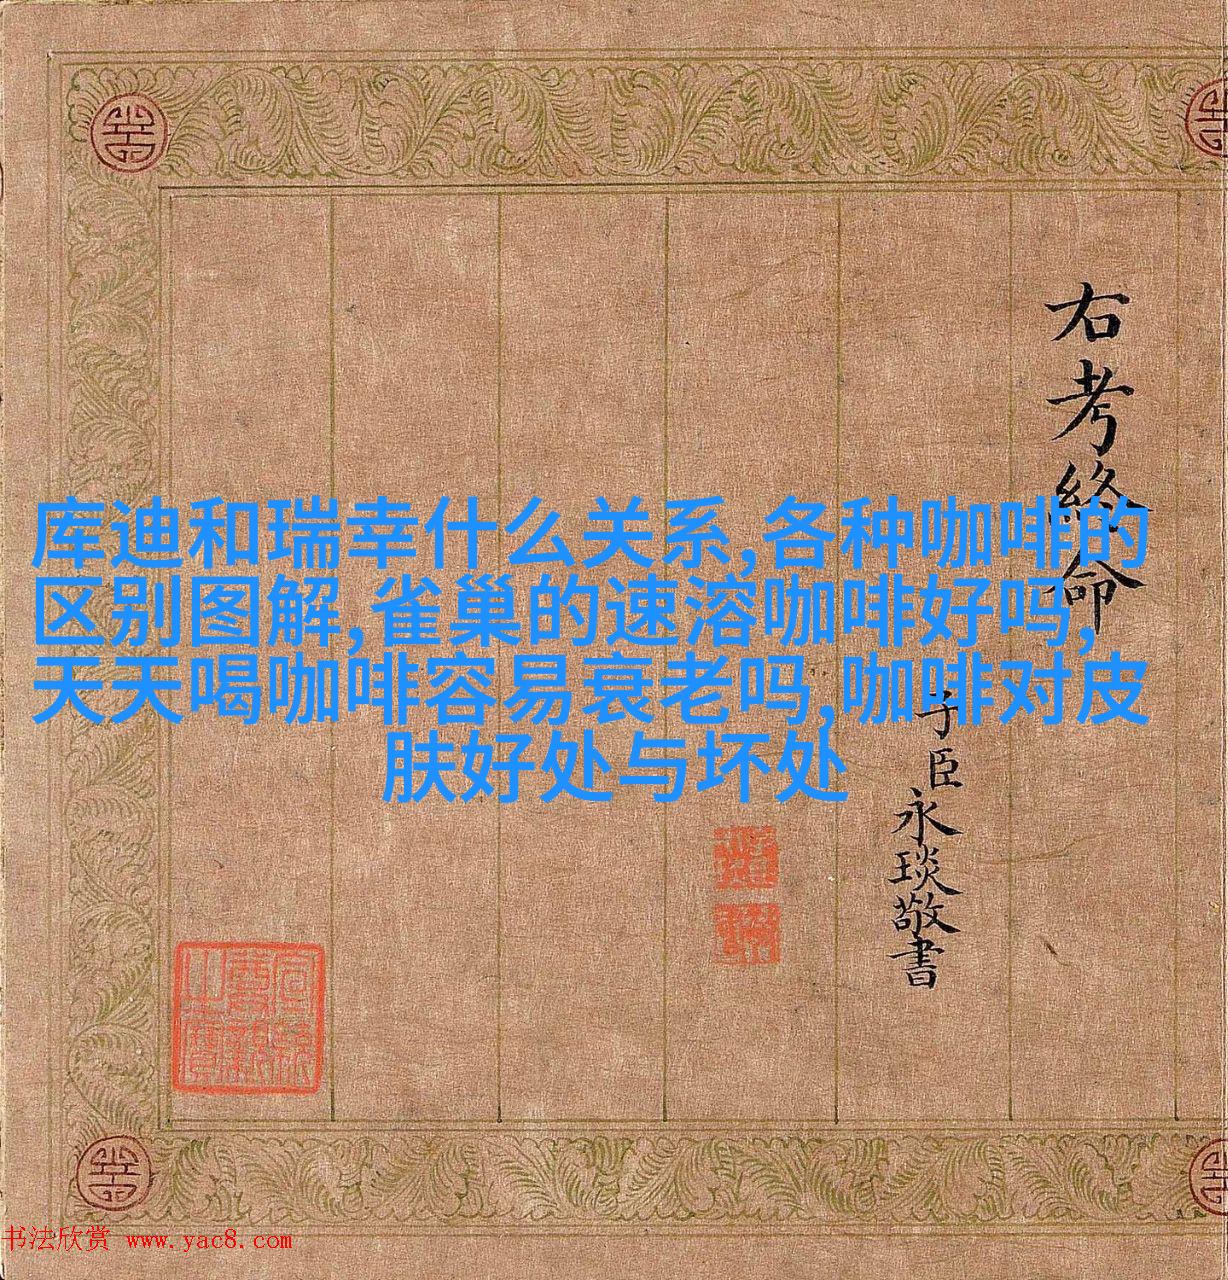 右考終命
子臣永琰敬書
库迪和瑞幸什么关系,各种咖啡的
区别图解,雀巢的速溶咖啡好吗,
天天喝咖啡容易衰老吗,咖啡对皮
肤好处与坏处
书法欣赏 www.yac8.com